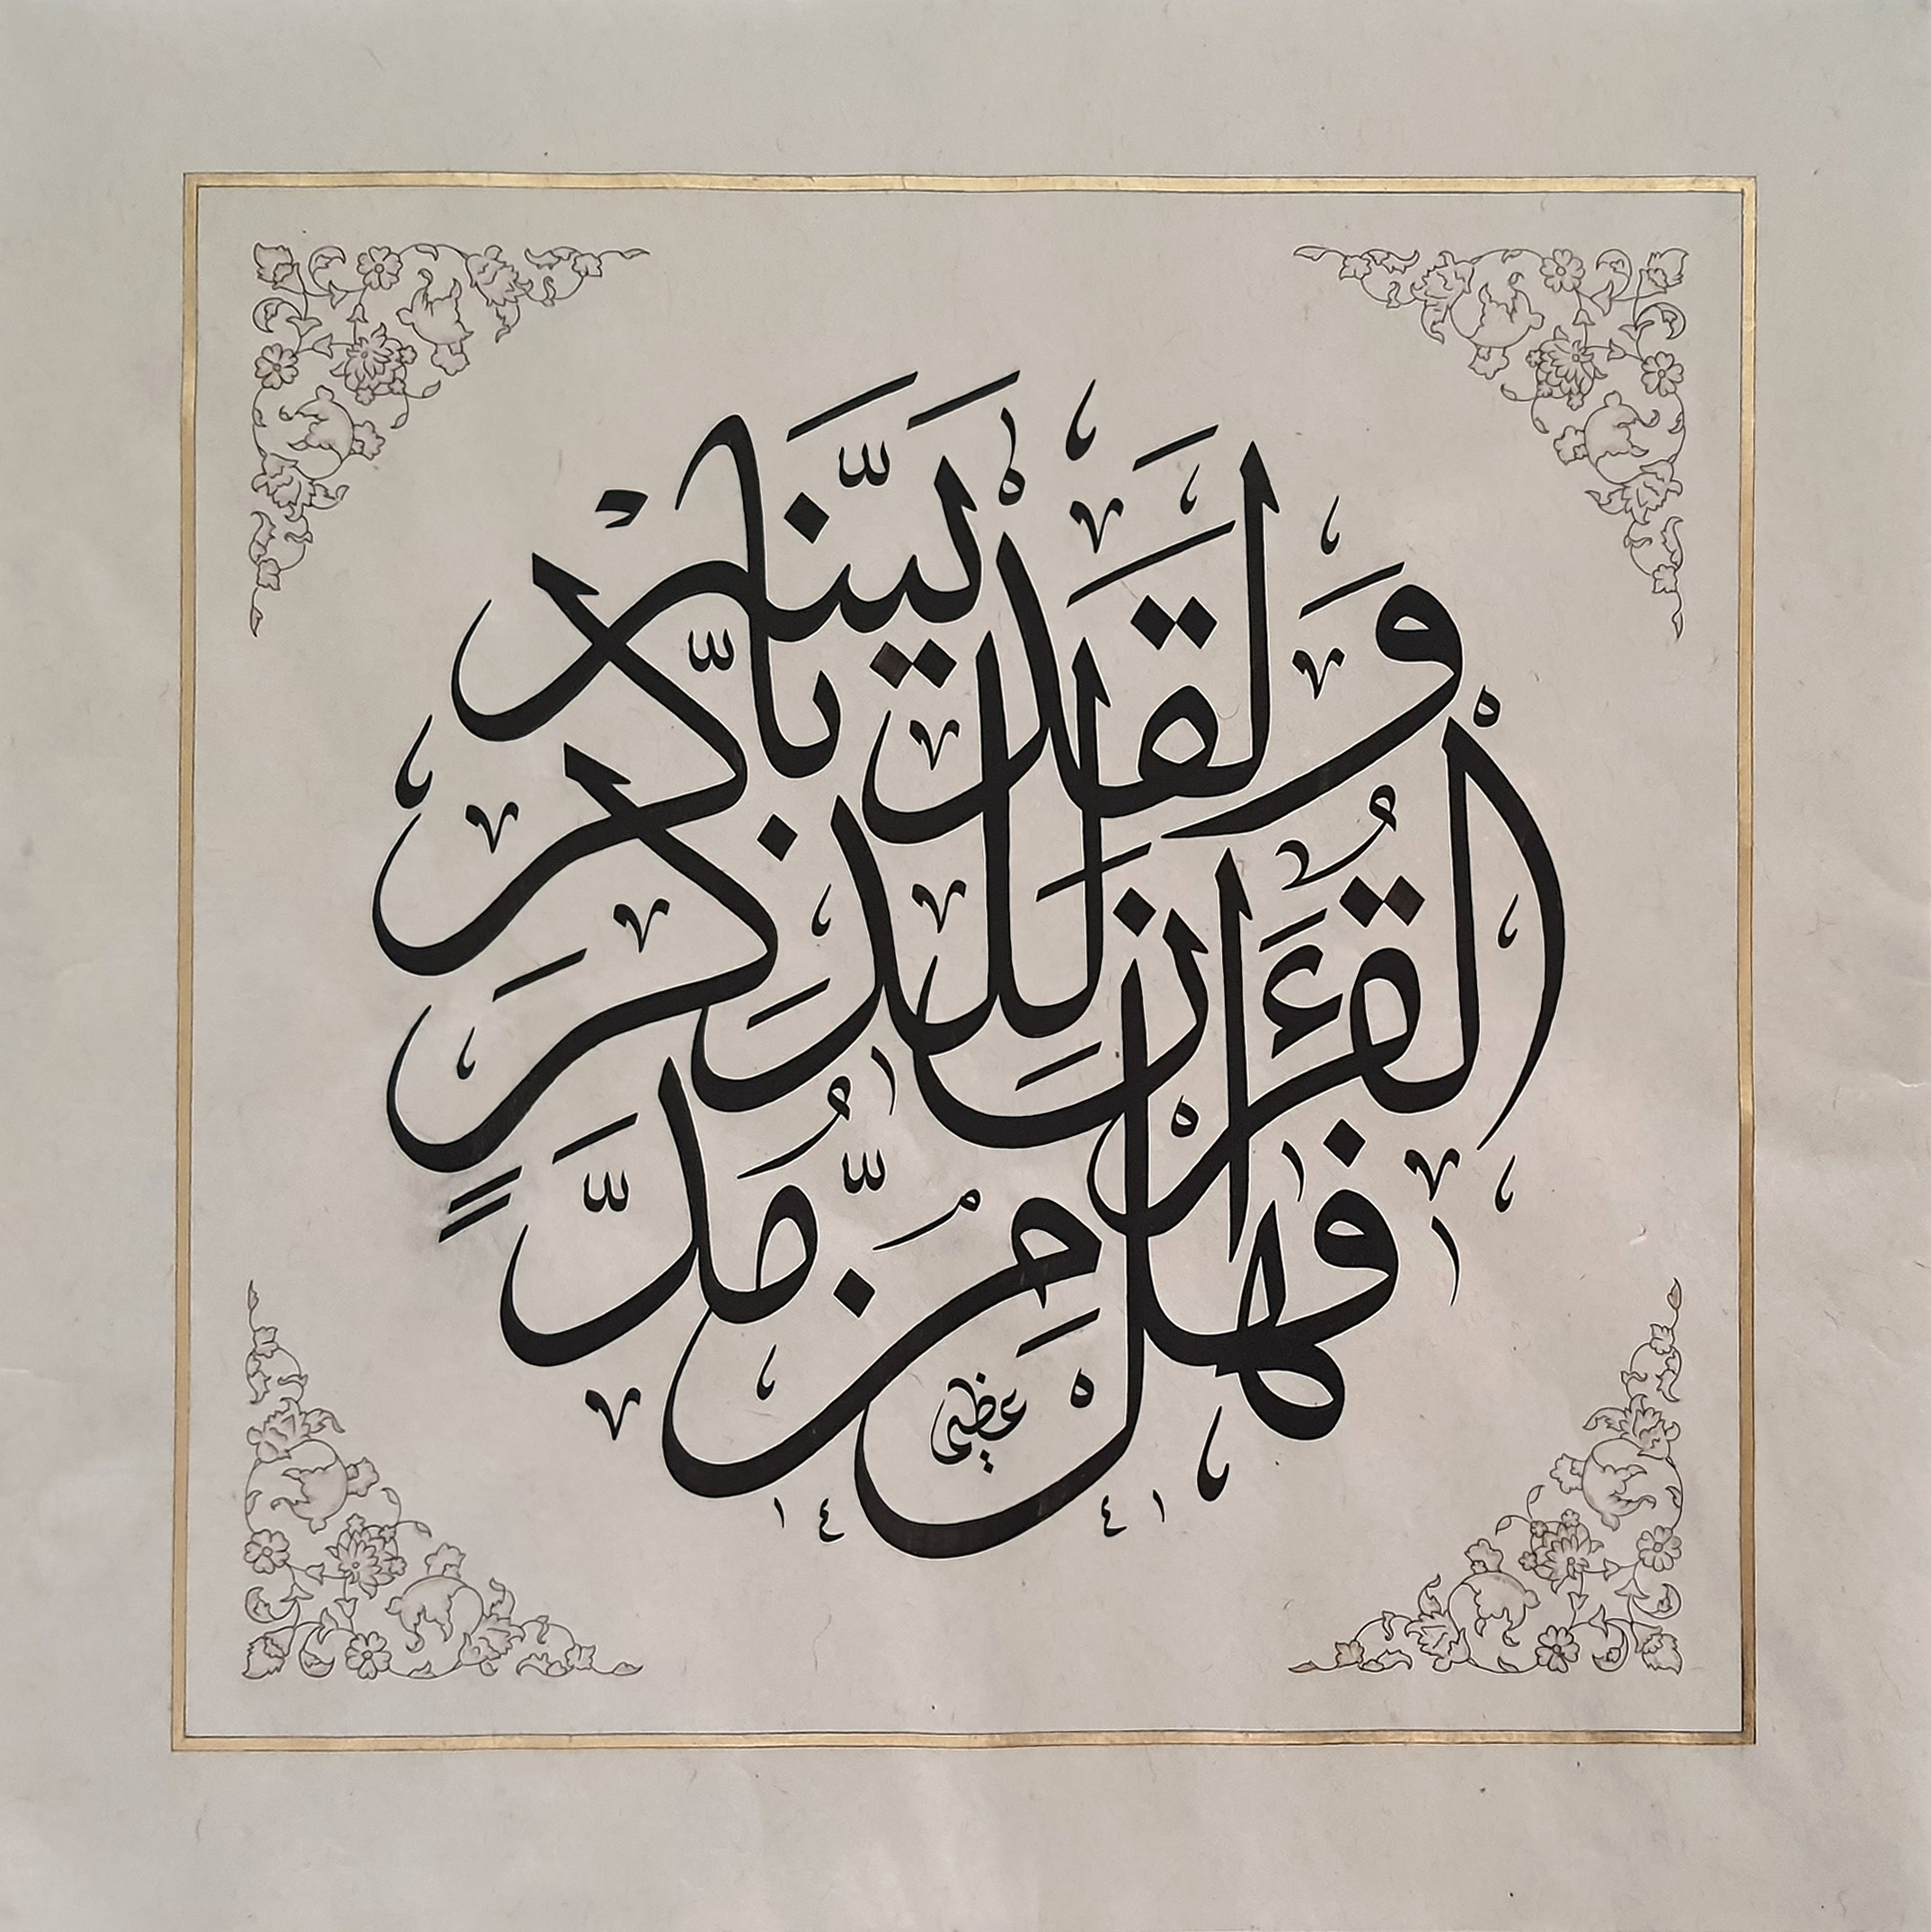 وَلَقَدْ يَسَّرْنَا
الْقُرْءَانَ لِلذِّكْرِ
فَهَلْ مِنْ مُّدَّكِرٍ
١٤ ٤١